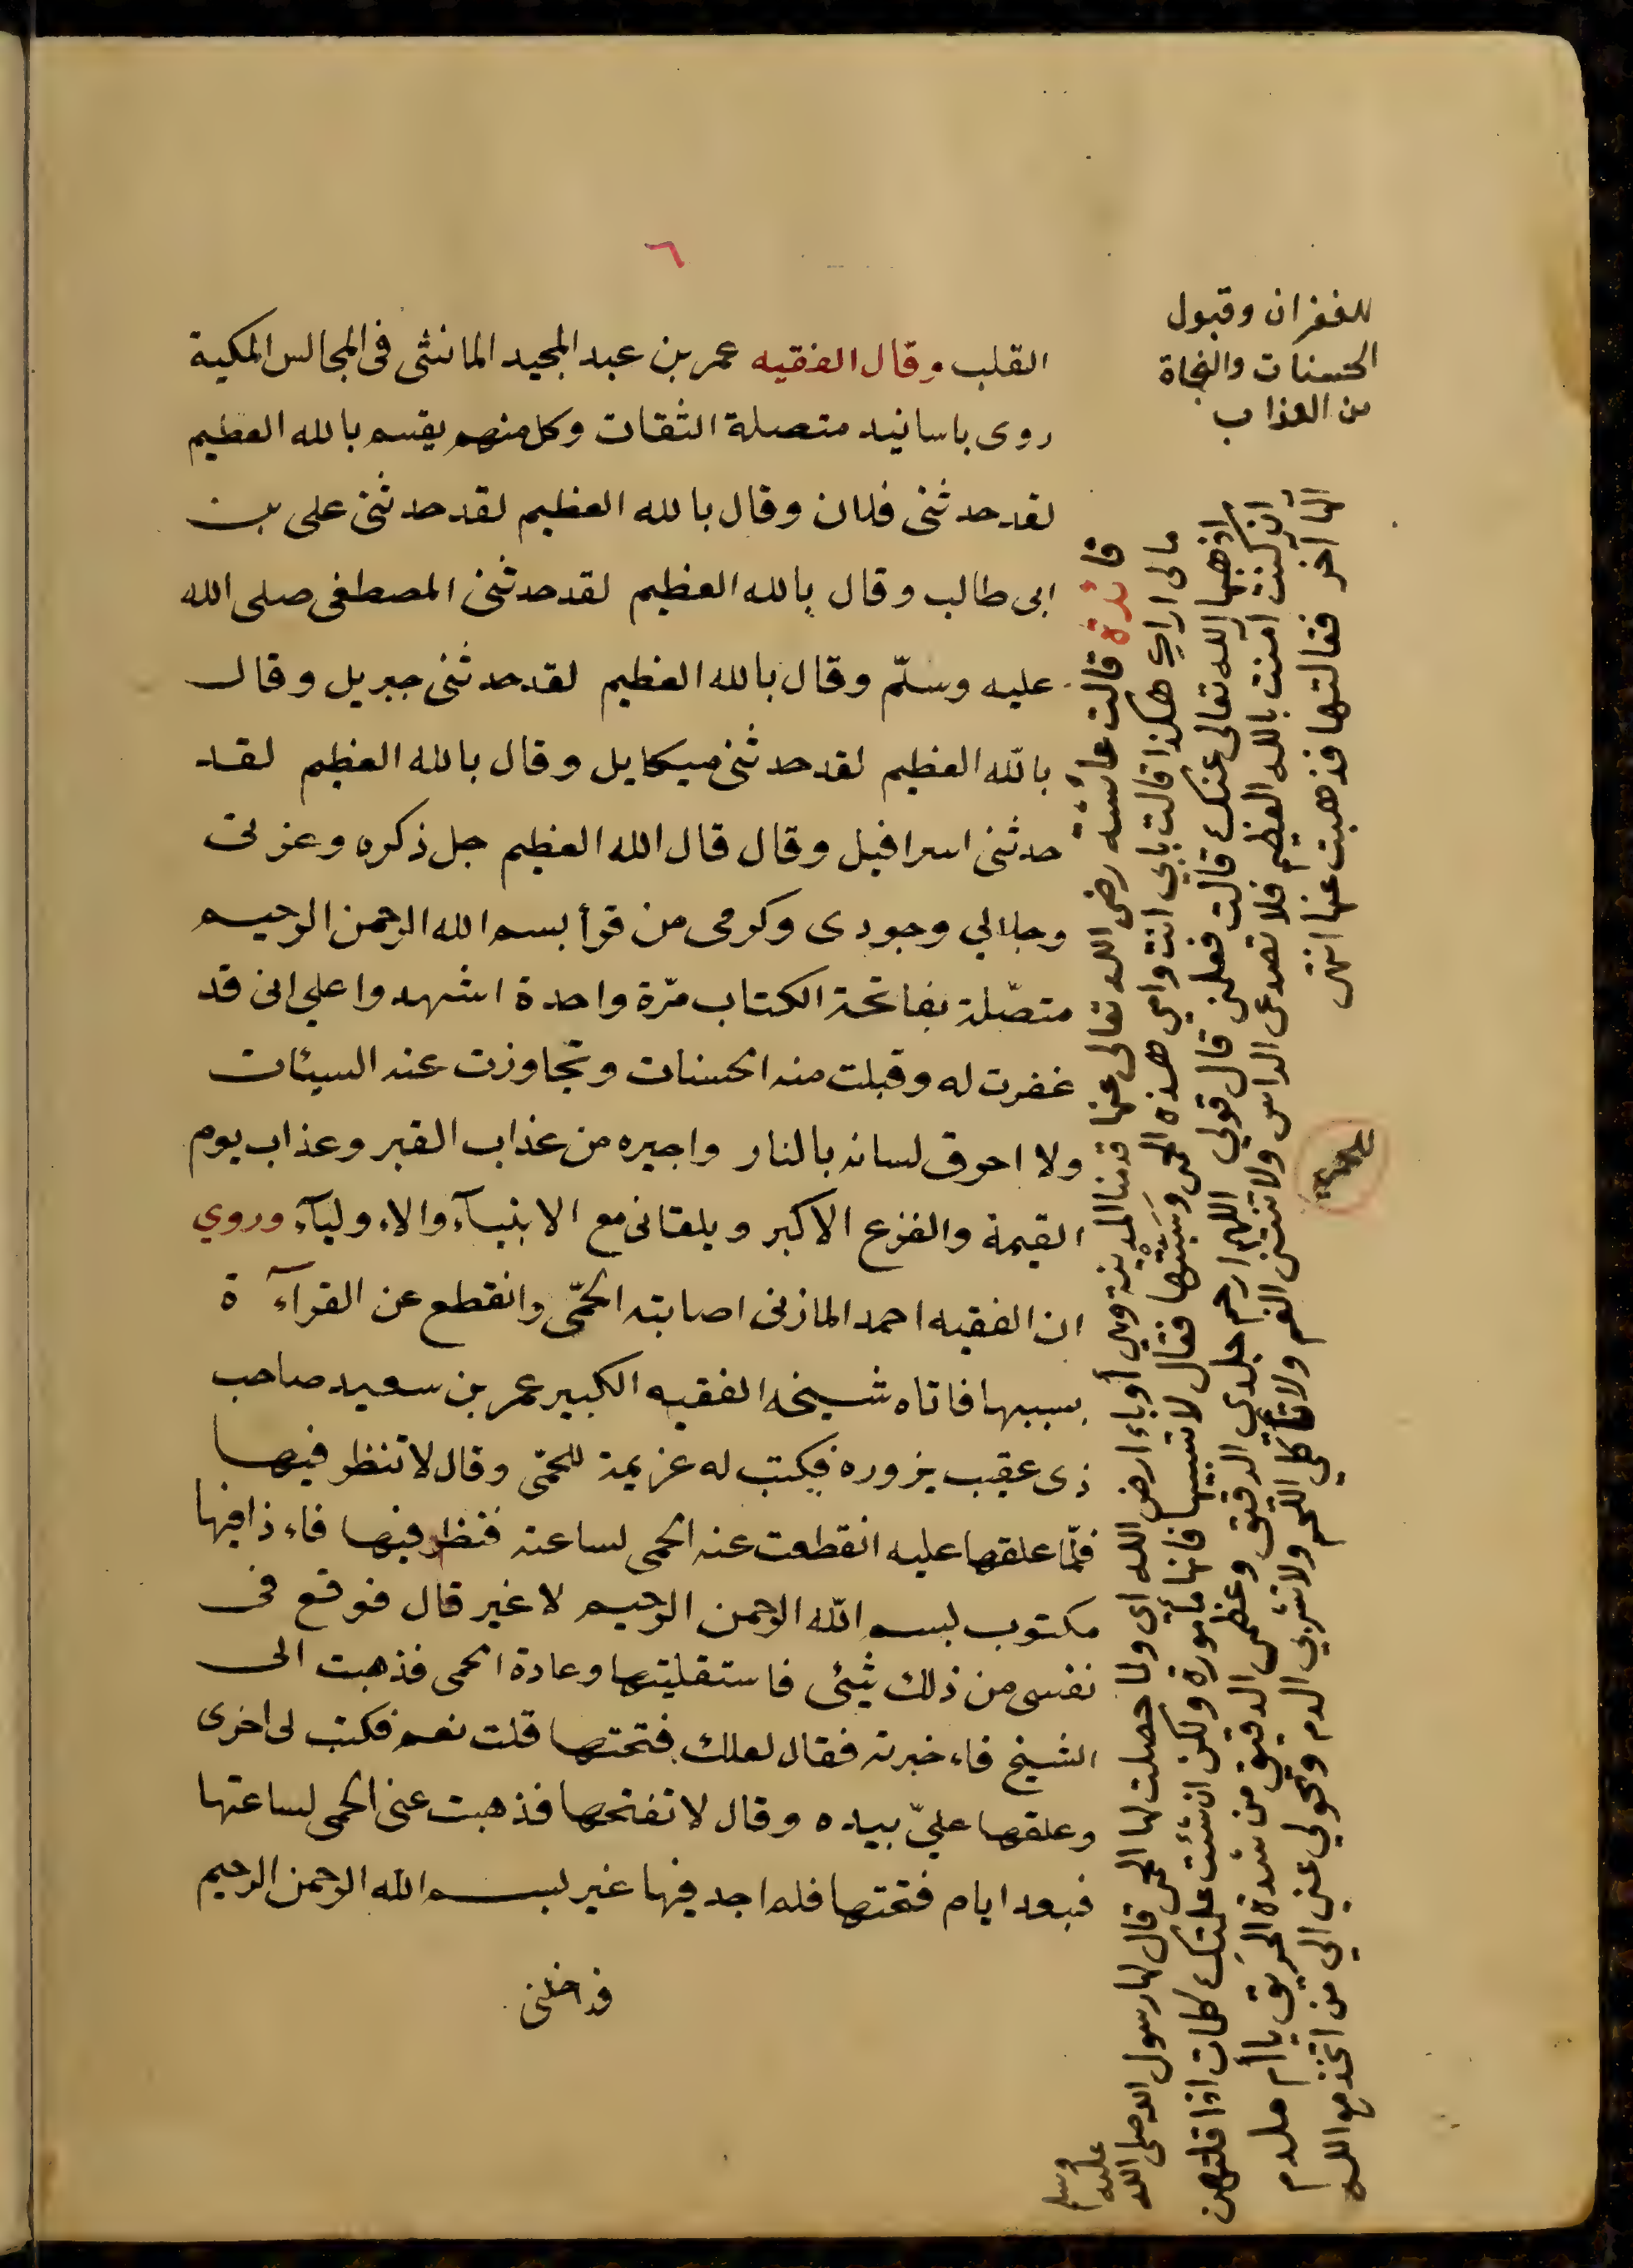 ٦
القلب وقال الفقيه عمر بن عبد المجيد المانشى فى المجالس المكية
روى باسانيد متصلة الثقات وكل منهم يقسم بالله العظيم
لقد حدثنى فلان وقال بالله العظيم لقد حدثنى على بن
ابى طالب وقال بالله العظيم لقد حدثنى المصطفى صلى الله
عليه وسلّم وقال بالله العظيم لقد حدثنى جبريل وقال
بالله العظيم لقد حدثنى ميكايل وقال بالله العظيم لقد
حدثنى اسرافيل وقال قال الله العظيم جل ذكره وعزتى
وجلالي وجودى وكرمى من قرأ بسم الله الرحمن الرحيم
متصّلة بفاتحة الكتاب مرّة واحدة اشهدوا علي انى قد
غفرت له وقبلت منه الحسنات وتجاوزت عنه السيئات
ولا احرق لسانه بالنار واجيره من عذاب القبر وعذاب يوم
القيمة والفزع الاكبر ويلقانى مع الانبيآء والاءوليآء وروي
ان الفقيه احمد المازنى اصابته الحمّى وانقطع عن القرآءة
بسببها فاتاه شيخه الفقيه الكبير عمر بن سعيد صاحب
ذى عقيب يزوره فكتب له عزيمة للحمّى وقال لا تنظر فيها
فلمّا علقها عليه انقطعت عنه الحمى لساعته فنظر فيها فاءذا فيها
مكتوب بسم الله الرحمن الرحيم لا غير قال فوقع فى
نفسى من ذلك شئى فاستقليتها وعادة الحمى فذهبت الى
الشيخ فاءخبرته فقال لعلك فتحتها قلت نعم فكتب لى اخرى
وعلقها عليّ بيده وقال لا تفتحها فذهبت عنى الحمى لساعتها
فبعد ايام فتحتها فلم اجد فيها غير بسم الله الرحمن الرحيم
فداخلنى
للغفران وقبول
الحسنات والنجاة
من العذاب
فائدة قالت عائشة رضى الله تعالى عنها قدمنا المدينة وهي أوباء ارض الله اى ولما حصلت لها الحمى قال لها رسول الله صلى الله عليه وسلم
مالى اراي هكذا قالت بابي انت وامي هذه الحمى وسَبَّتْها فقال لا تسبيها فانها مأمورة ولكن ان شئت علمتك كلمات اذا قلتهن
اذهبها الله تعالى عنك قالت فعلمنى قال قولي اللهم ارحم جلدي الرقيق وعظمى الدقيق من شدة الحريق يا أم ملدم
ان كنت امنت بالله العظيم فلا تصدعى الراس ولا تنتنى الفم ولا تأكلي اللحم ولا تشربي الدم وتحولي عني الي من اتخذ مع الله
الها آخر فقالتها فذهبت عنها انتهى